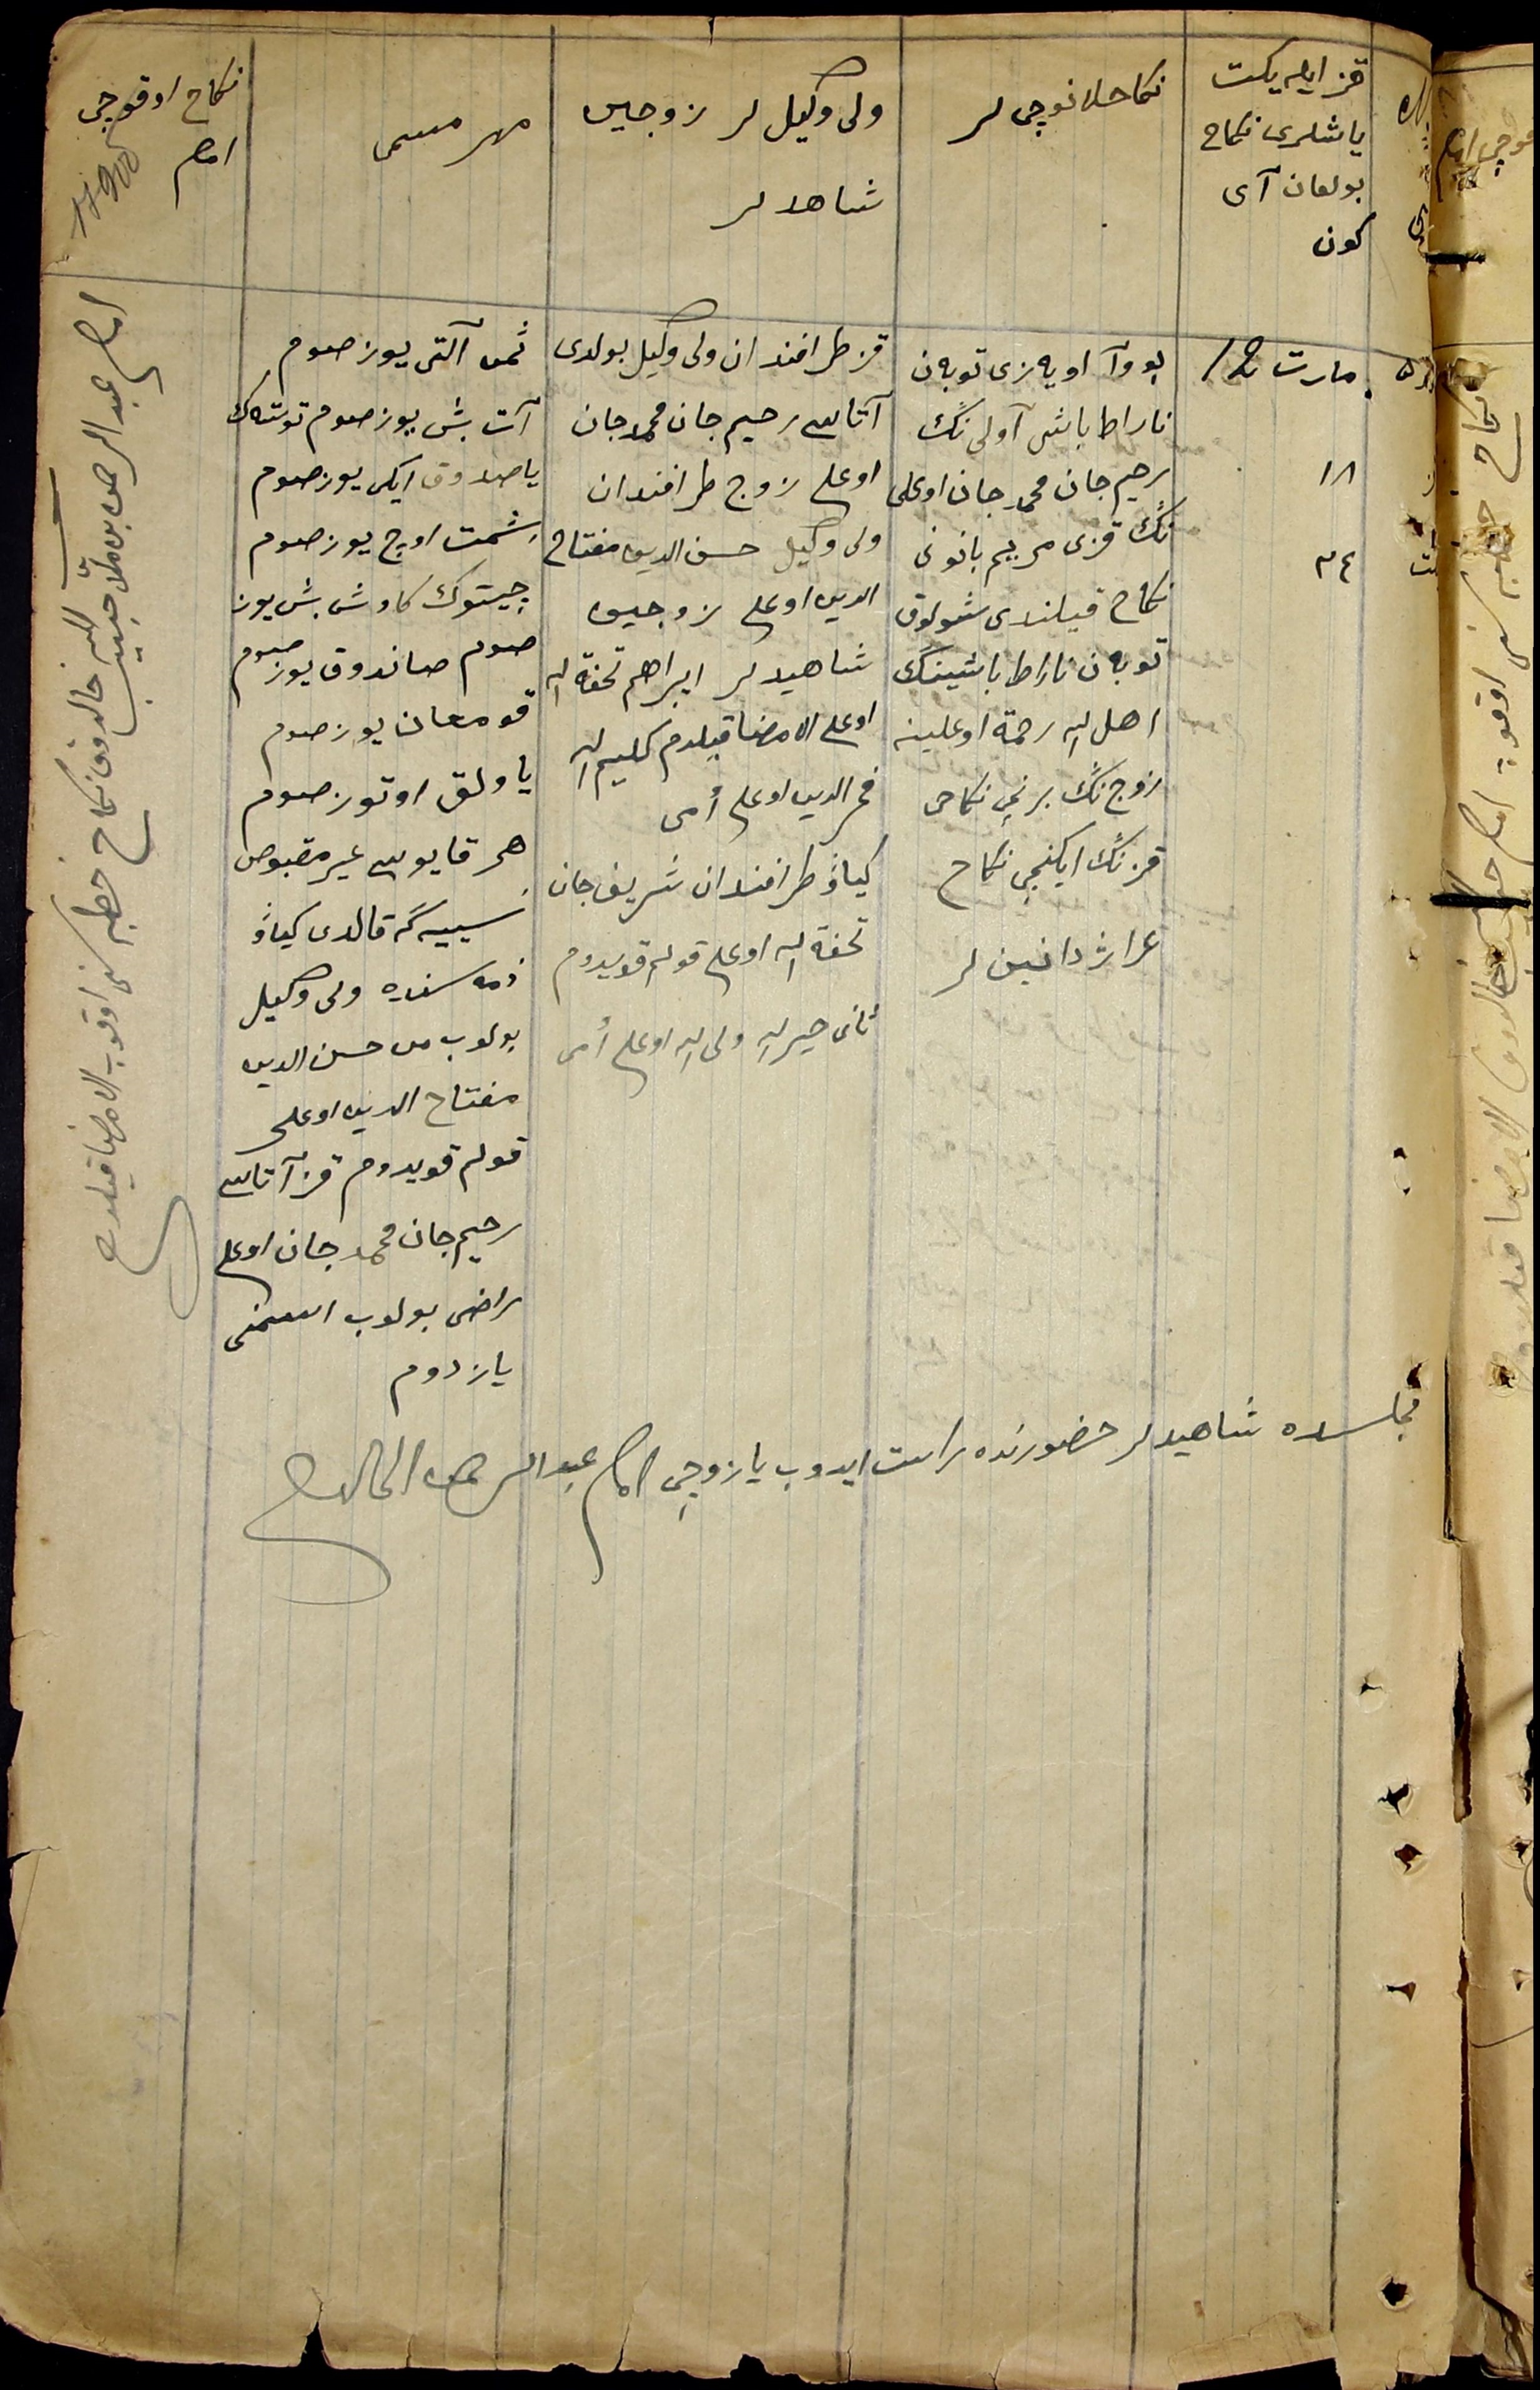 قز ایله یکت
یاشلری نکاح
بولغان آی
کون
نکاحلانوچی لر
ولی وکیل لر زوجین
شاهدلر
مهر مسمی
نکاح اوقوچی
امام
مارت
۱۸
۲۴
بووآ اویه زی توبه ن
ناراط باشی آولی نڭ
رحیم جان محمد جان اوغلی
نڭ قزی مریم بانونی
نکاح قیلندی شولوق
توبه ن ناراط باشینڭ
اهل الله رحمة اوغلینه
زوج نڭ برنچی نکاحی
قز نڭ ایکنچی نکاح
غراژدانین لر
قز طرافندان ولی وکیل بولدی
آتاسی رحیم جان محمد جان
اوغلی زوج طرافندان
ولی وکیل حسن الدین مفتاح
الدین اوغلی زوجین
شاهیدلر ابراهم تحفة الله
اوغلی الامضا قیلدم کلیم الله
فخر الدین اوغلی أمی
کیاۋ طرافندان شریف جان
تحفة الله اوغلی قولم قویدوم
ثانی خیر الله ولی الله اوغلی أمی
ثمن آلتی یوز صوم
آت بش یوز صوم توشه ک
یاصدوق ایکی یوز صوم
شمت اوچ یوز صوم
چیتوک کاوش بش یوز
صوم صاندوق یوز صوم
قومغان یوز صوم
یاولق اوتوز صوم
هر قایوسی غیر مقبوض
نسییه گه قالدی کیاۋ
ذمه سنده ولی وکیل
بولوب من حسن الدین
مفتاح الدین اوغلی
قولم قویدوم قز آتاسی
رحیم جان محمد جان اوغلی
راضی بولوب اسمنی
یازدوم
امام عبد الرحمن بن ملا حبیب الله خالدوف نکاح خطبه سنی اوقوب الامضا قیلدم
مجلسده شاهیدلر حضورنده راست ایدوب یازوچی امام عبد الرحمن الخالدی